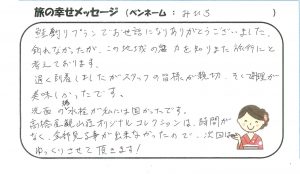 旅の幸せメッセージ (ペンネーム: みひろ )
鮭釣りプランでお世話になりありがとうございました。
釣れなかったが、この地域の魅力を知りまた旅行にと
考えております。
遅く到着しましたがスタッフの皆様が親切、そして料理が
美味しかったです。
洗面場の水栓が私には固かったです。
高橋屋観山荘オリジナルコレクションは、時間が
なく、全部見る事が出来なかったので…次回は
ゆっくりさせて頂きます!